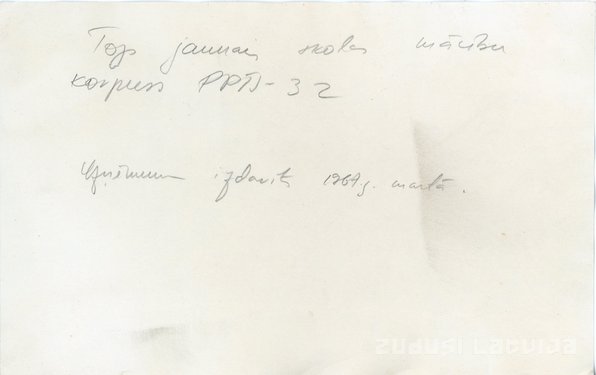 Top jaunais skolas mācību
korpuss PPTS-32
Uzņēmums izdarīts 1967g. martā.
zudusi Latvija